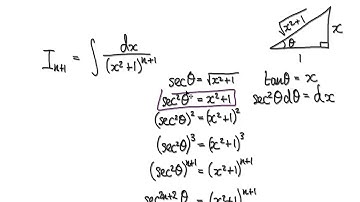 I_{n+1} = ∫ dx / (x²+1)^{n+1}
√x²+1
x
θ
1
secθ = √x²+1
tanθ = x
sec²θ = x²+1
sec²θdθ = dx
(sec²θ)² = (x²+1)²
(sec²θ)³ = (x²+1)³
(sec²θ)^{n+1} = (x²+1)^{n+1}
sec^{2n+2}θ = (x²+1)^{n+1}